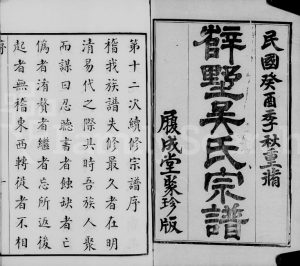 民國癸酉季秋重脩
薛墅吳氏宗譜
履成堂聚珍版
第十二次續修宗譜序
稽我族譜失修最久者在明
清易代之際其時吾族人聚
而謀曰忍聽書者蝕缺者亡
偽者淆贅者繼者忘所返後
起者無稽東西轉徙者不相